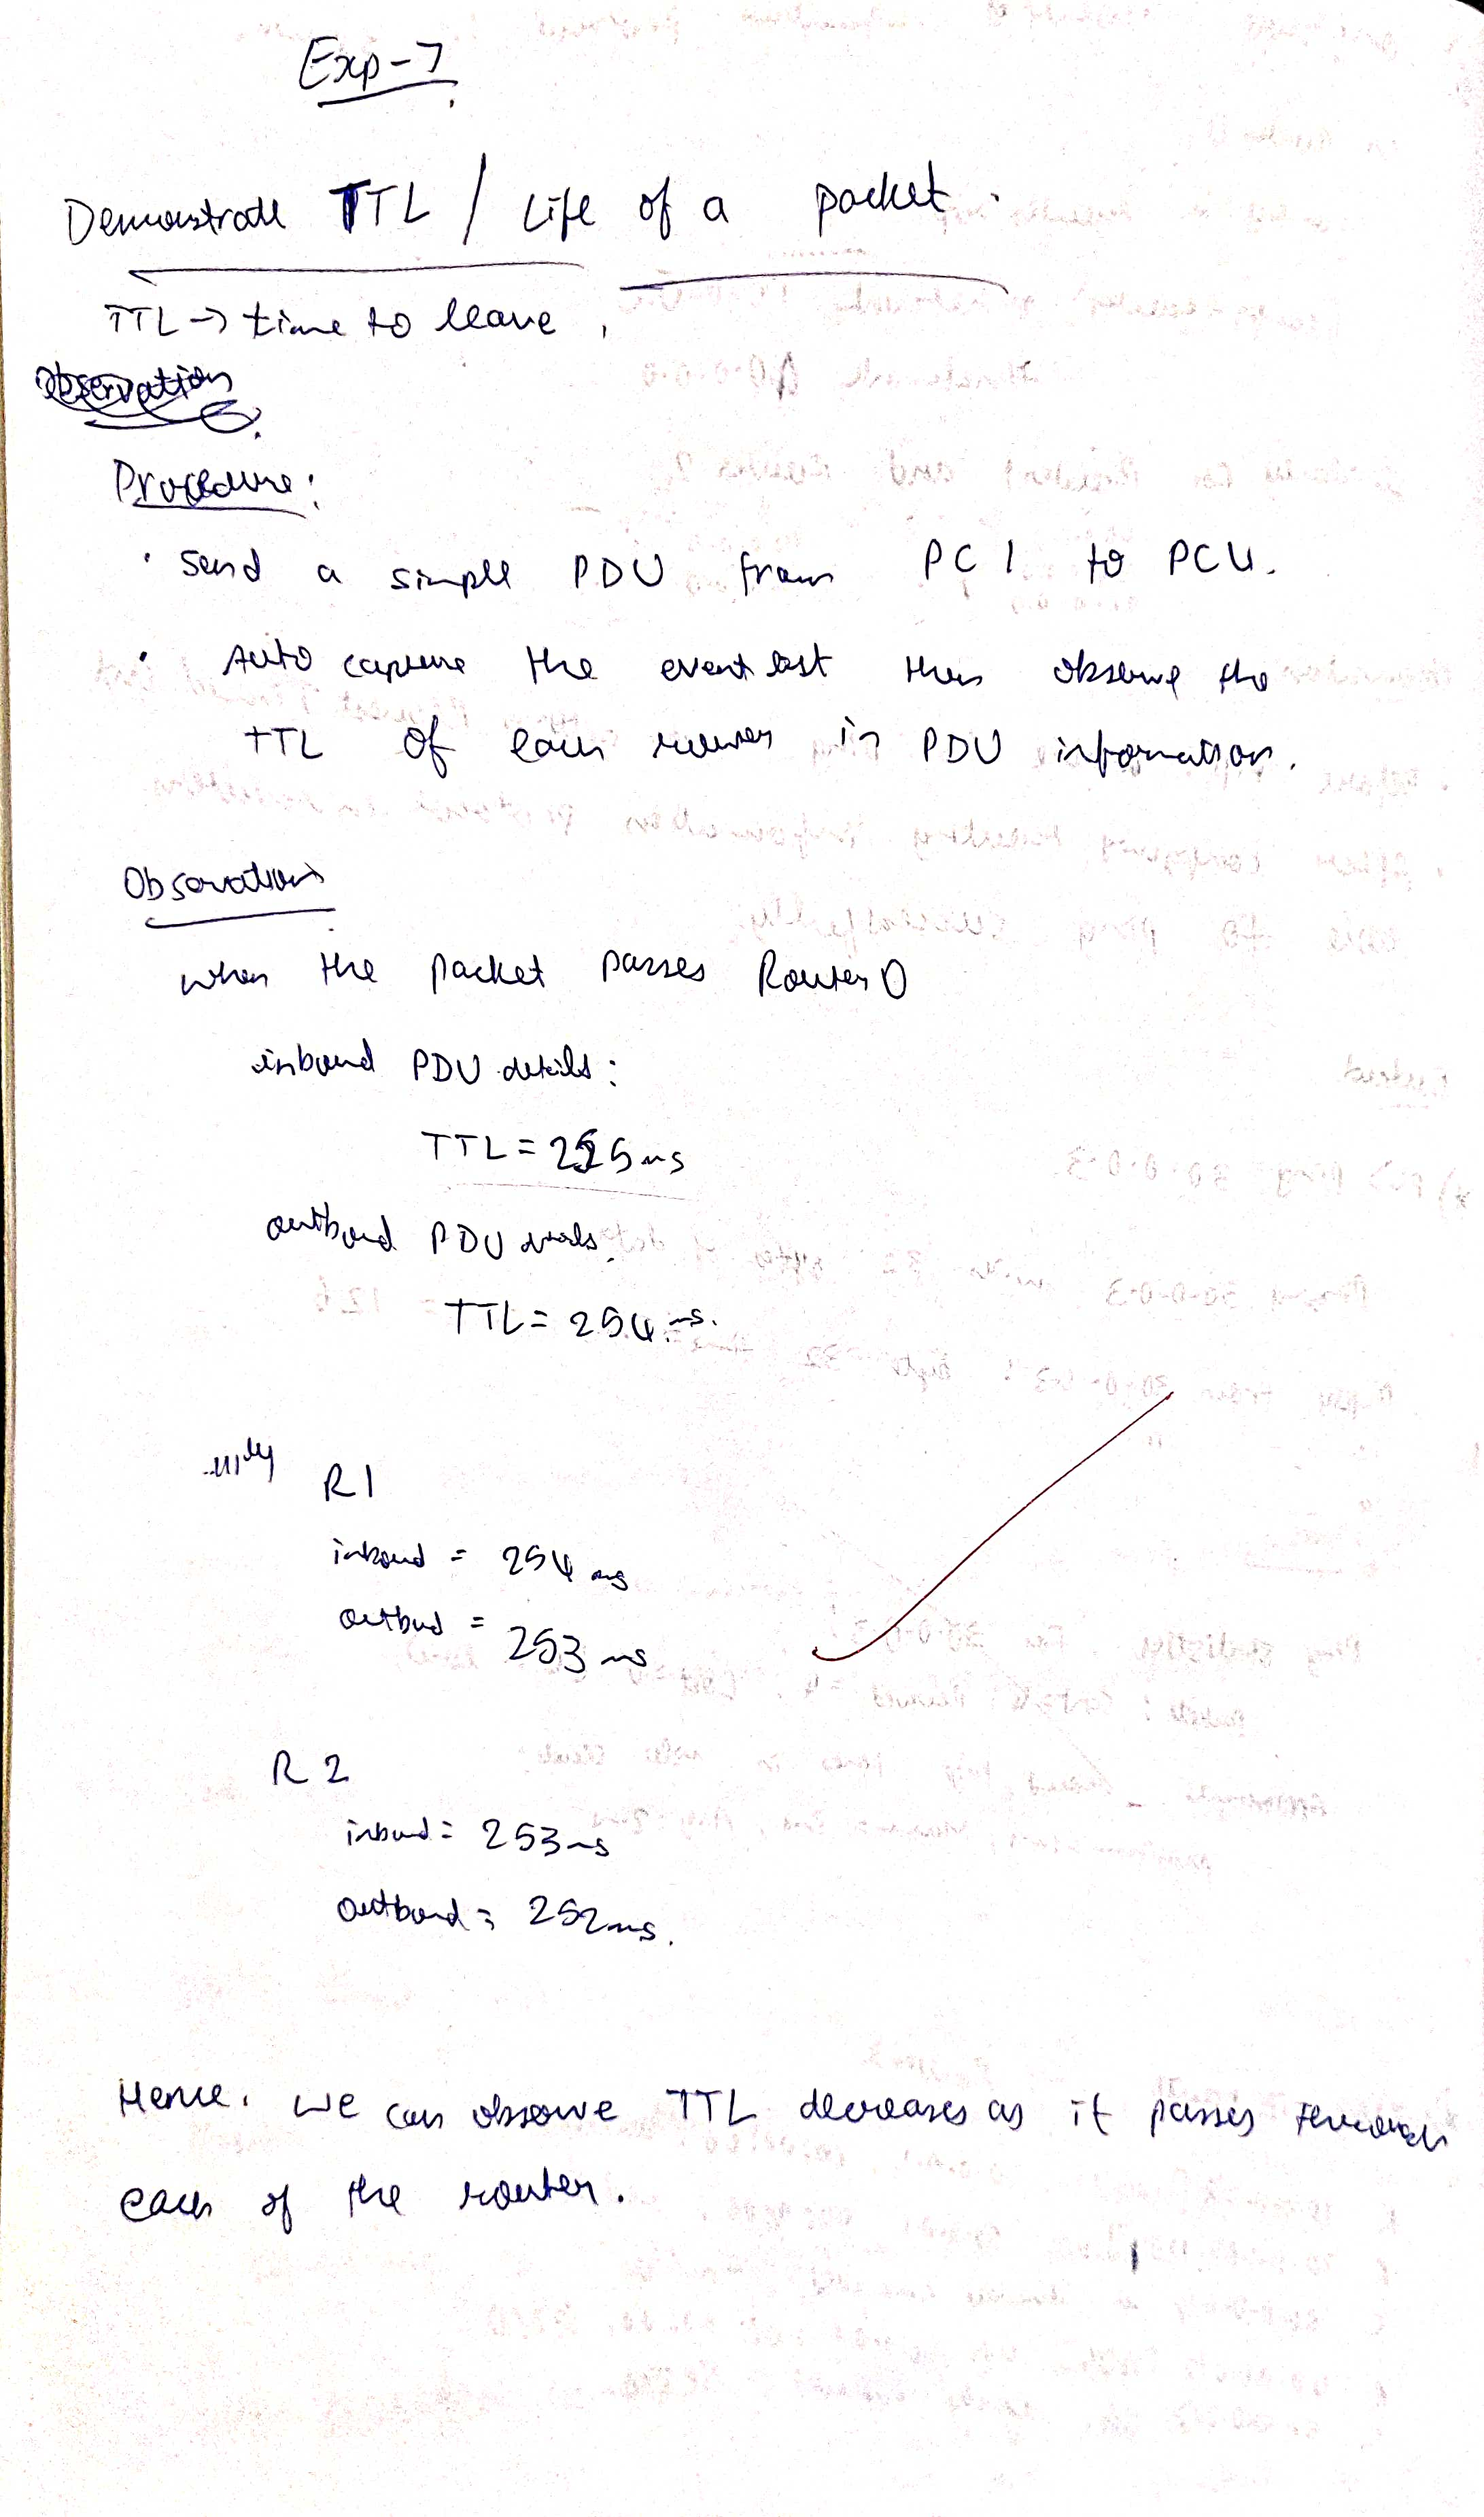 Exp-7
Demonstrate TTL / Life of a packet.
TTL → time to leave,
Observation
Procedure:
· Send a simple PDU from PC1 to PC4.
· Auto capture the event list then observe the
TTL of each router in PDU information.
Observation
when the packet passes Router 0
inbound PDU details:
TTL = 255 ms
outbound PDU details.
TTL = 254 ms.
lllly R1
inbound = 254 ms
outbud = 253 ms
R2
inbund = 253 ms
outbound = 252 ms.
Hence. we can observe TTL decreases as it passes through
each of the router.